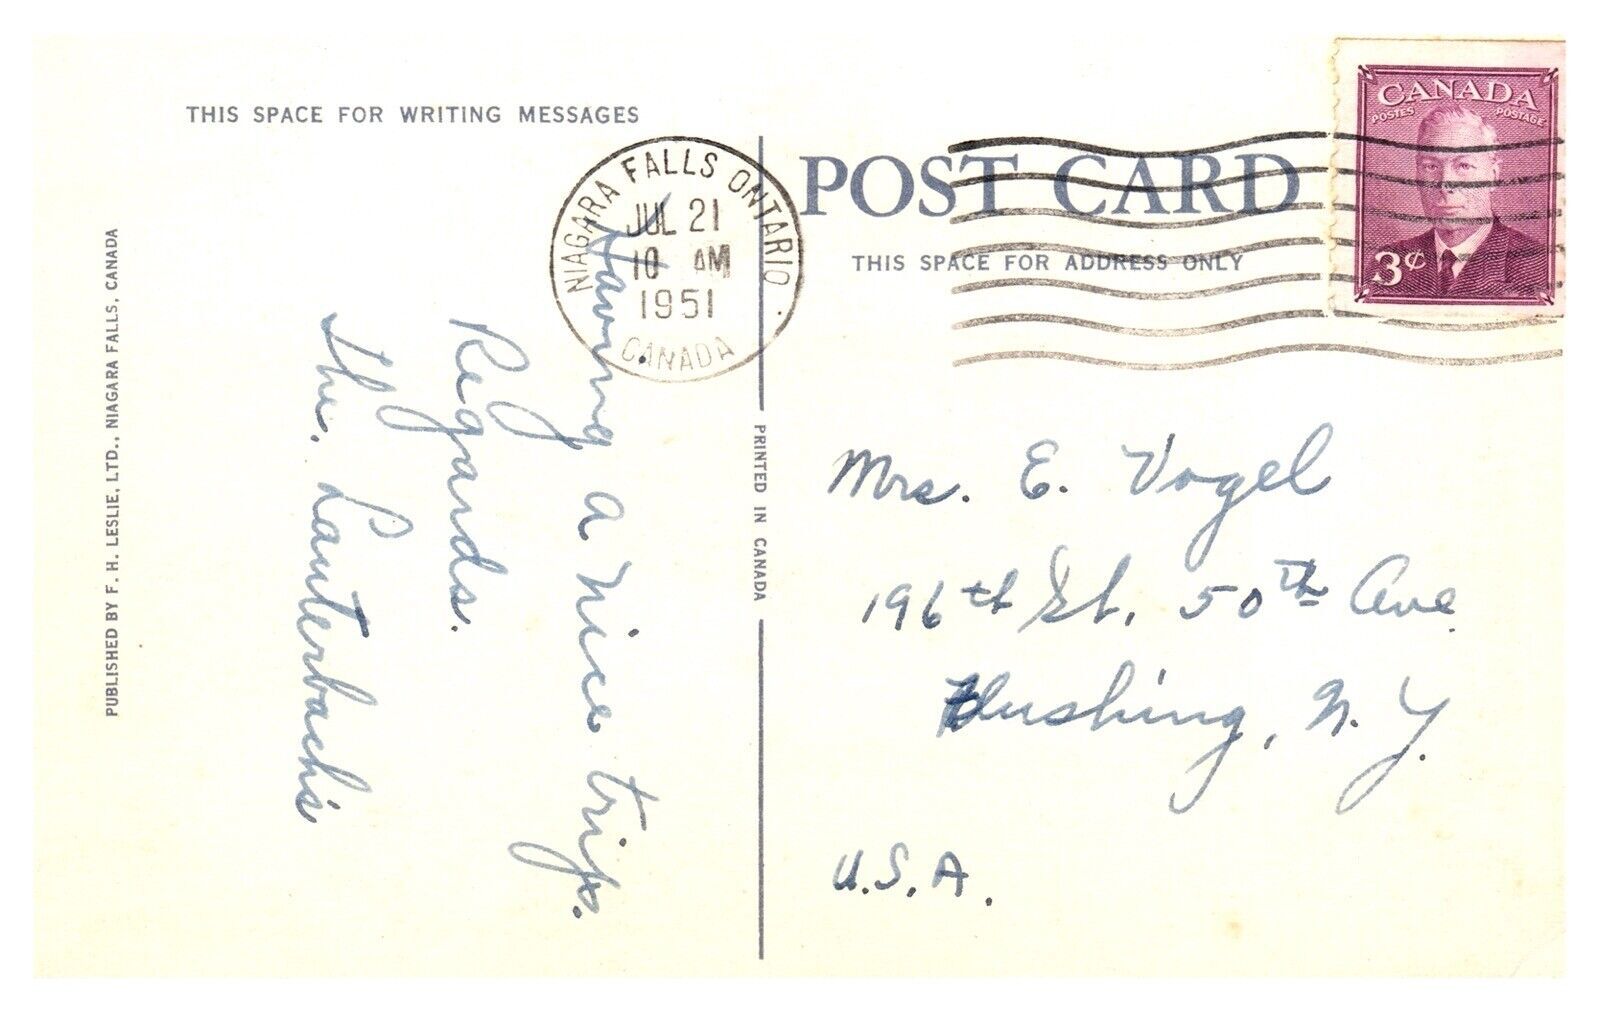 THIS SPACE FOR WRITING MESSAGES
Having a nice trip.
Regards.
The. Lauterbach's
PUBLISHED BY F. H. LESLIE, LTD., NIAGARA FALLS, CANADA
NIAGARA FALLS ONTARIO
JUL 21
10 AM
1951
CANADA
PRINTED IN CANADA
POST CARD
THIS SPACE FOR ADDRESS ONLY
CANADA
POSTES POSTAGE
3¢
Mrs. E. Vogel
196th St. 50th Ave
Flushing, N.Y.
U.S.A.